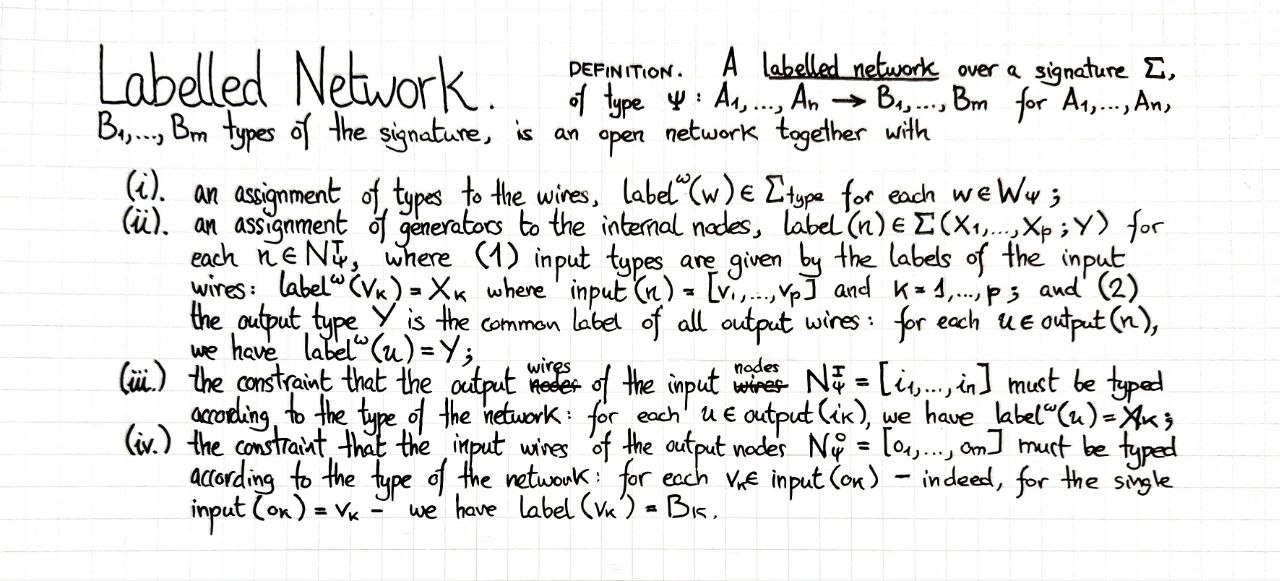 Labelled Network. DEFINITION. A labelled network over a signature Σ,
of type Ψ : A₁,..., Aₙ → B₁,..., Bₘ for A₁,..., Aₙ,
B₁,..., Bₘ types of the signature, is an open network together with
(i). an assignment of types to the wires, label^ω(w) ∈ Σtype for each w ∈ W_Ψ ;
(ii). an assignment of generators to the internal nodes, label (n) ∈ Σ(X₁,...,Xₚ ; Y) for
each n ∈ N^I_Ψ, where (1) input types are given by the labels of the input
wires: label^ω(vₖ) = Xₖ where input (n) = [v₁,...,vₚ] and k = 1,...,p ; and (2)
the output type Y is the common label of all output wires: for each u ∈ output(n),
we have label^ω(u) = Y;
(iii.) the constraint that the output ~~nodes~~ wires of the input ~~wires~~ nodes N^I_Ψ = [i₁,...,iₙ] must be typed
according to the type of the network: for each u ∈ output(iₖ), we have label^ω(u) = Aₖ;
(iv.) the constraint that the input wires of the output nodes N^o_Ψ = [o₁,..., oₘ] must be typed
according to the type of the network: for each vₖ ∈ input (oₖ) – indeed, for the single
input (oₖ) = vₖ – we have label (vₖ) = Bₖ.